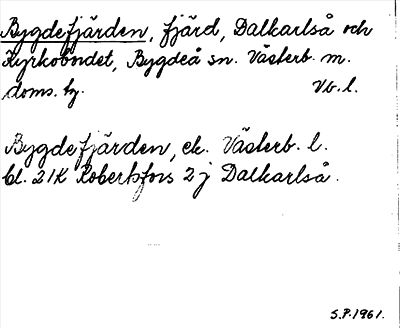 Bygdefjärden, fjärd, Dalkarlså och
Kyrkobordet, Bygdeå sn. Västerb. m.
doms. hg. Vb. l.
Bygdefjärden, ek. Västerb. l.
bl. 21K Robertsfors 2j Dalkarlså.
S.P. 1961.